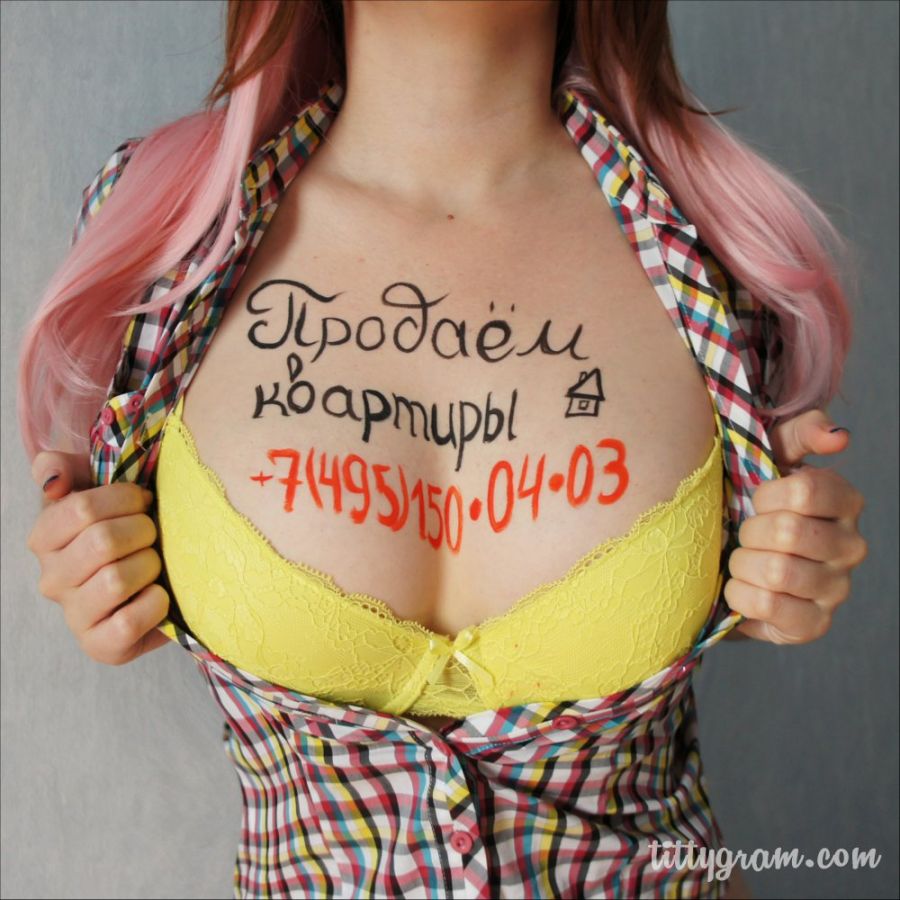 Продаём
квартиры
+7(495)150•04•03
tittygram.com